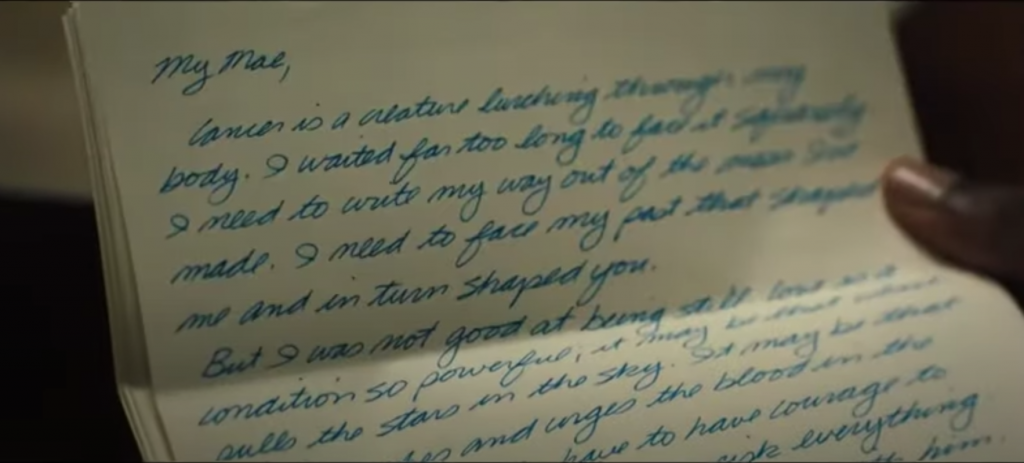 My Mae,
Cancer is a creature lurching through my
body. I waited far too long to face it squarely.
I need to write my way out of the mess I've
made. I need to face my past that shaped
me and in turn shaped you.
But I was not good at being still. Love is a
condition so powerful, it may be that which
pulls the stars in the sky. It may be that
and urges the blood in the
have to have courage to
risk everything
him.